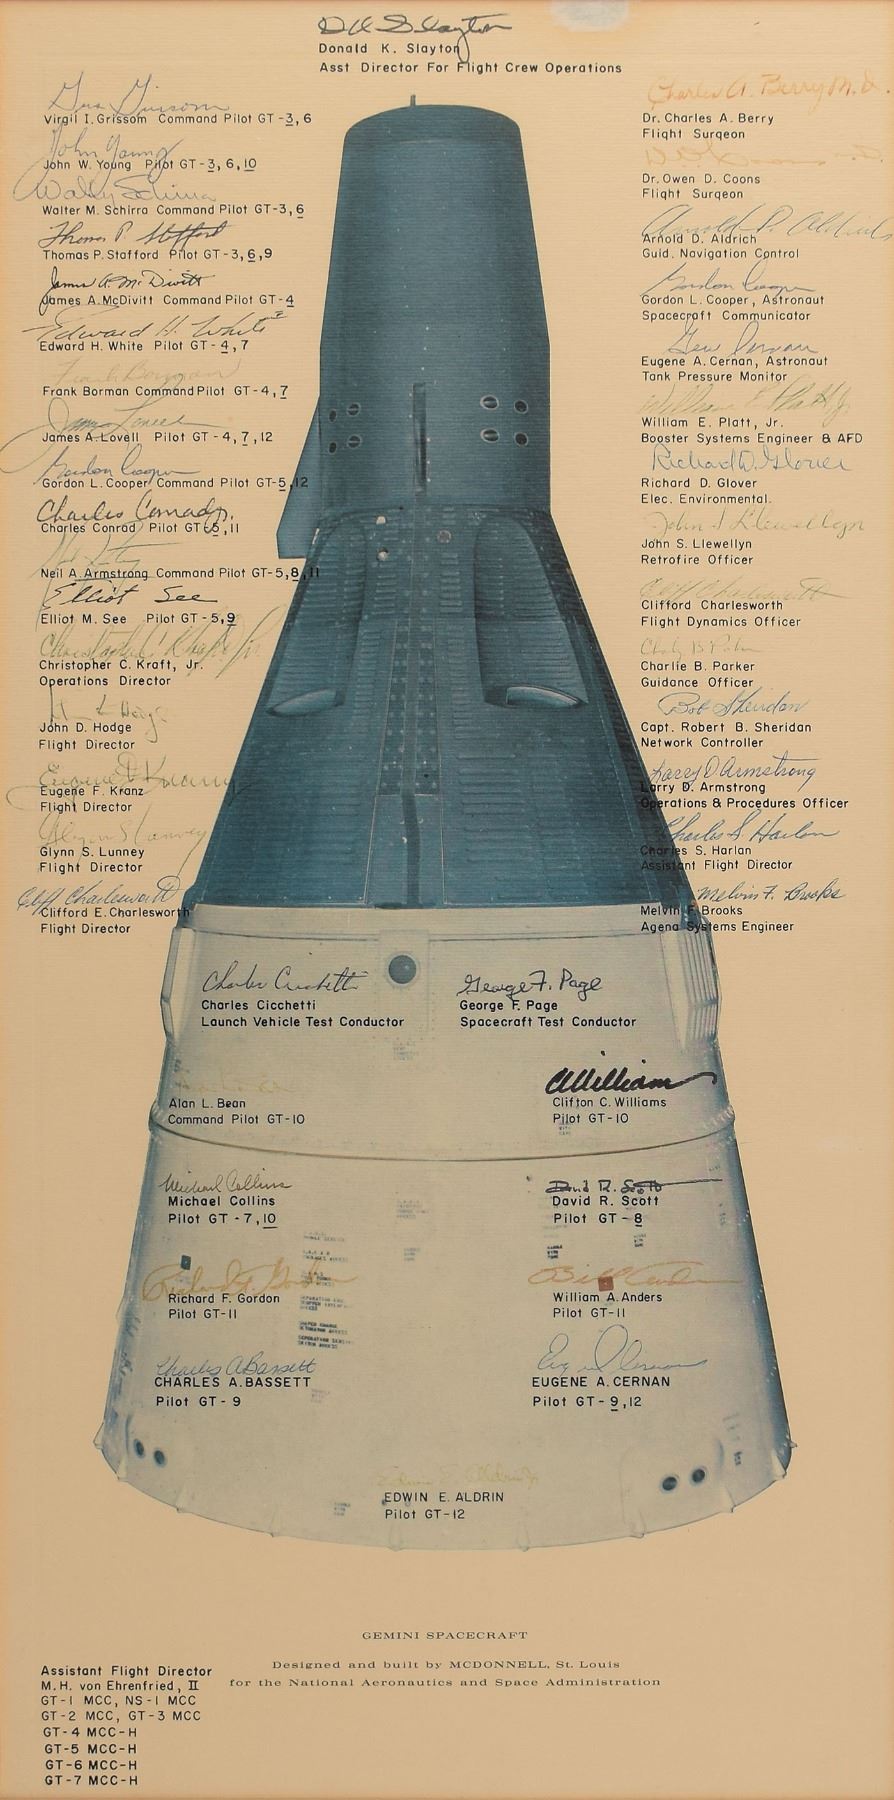 D K Slayton
Donald K. Slayton
Asst Director For Flight Crew Operations
Gus Grissom
Virgil I. Grissom Command Pilot GT-3, 6
John Young
John W. Young Pilot GT-3, 6, 10
Wally Schirra
Walter M. Schirra Command Pilot GT-3, 6
Thomas P. Stafford
Thomas P. Stafford Pilot GT-3, 6, 9
James A. McDivitt
James A. McDivitt Command Pilot GT-4
Edward H. White II
Edward H. White Pilot GT-4, 7
Frank Borman
Frank Borman Command Pilot GT-4, 7
James Lovell
James A. Lovell Pilot GT-4, 7, 12
Gordon Cooper
Gordon L. Cooper Command Pilot GT-5, 12
Charles Conrad Jr.
Charles Conrad Pilot GT-5, 11
Neil A. Armstrong Command Pilot GT-5, 8, 11
Elliot See
Elliot M. See Pilot GT-5, 9
Christopher C. Kraft, Jr.
Christopher C. Kraft, Jr.
Operations Director
John D. Hodge
John D. Hodge
Flight Director
Eugene F. Kranz
Eugene F. Kranz
Flight Director
Glynn S. Lunney
Glynn S. Lunney
Flight Director
Cliff Charlesworth
Clifford E. Charlesworth
Flight Director
Charles A. Berry M.D.
Dr. Charles A. Berry
Flight Surgeon
D. O. Coons M.D.
Dr. Owen D. Coons
Flight Surgeon
Arnold D. Aldrich
Arnold D. Aldrich
Guid. Navigation Control
Gordon Cooper
Gordon L. Cooper, Astronaut
Spacecraft Communicator
Gene Cernan
Eugene A. Cernan, Astronaut
Tank Pressure Monitor
William E. Platt Jr.
William E. Platt, Jr.
Booster Systems Engineer & AFD
Richard D. Glover
Richard D. Glover
Elec. Environmental.
John S Llewellyn
John S. Llewellyn
Retrofire Officer
Cliff Charlesworth
Clifford Charlesworth
Flight Dynamics Officer
Charley B Parker
Charlie B. Parker
Guidance Officer
Bob Sheridan
Capt. Robert B. Sheridan
Network Controller
Larry D Armstrong
Larry D. Armstrong
Operations & Procedures Officer
Charles S. Harlan
Charles S. Harlan
Assistant Flight Director
Melvin F. Brooks
Melvin F. Brooks
Agena Systems Engineer
Charles Cicchetti
Charles Cicchetti
Launch Vehicle Test Conductor
George F. Page
George F. Page
Spacecraft Test Conductor
Alan L. Bean
Command Pilot GT-10
CWilliams
Clifton C. Williams
Pilot GT-10
Michael Collins
Michael Collins
Pilot GT-7, 10
David R. Scott
David R. Scott
Pilot GT-8
Richard F. Gordon
Richard F. Gordon
Pilot GT-11
Bill Anders
William A. Anders
Pilot GT-11
Charles A Bassett
CHARLES A. BASSETT
Pilot GT-9
Eugene Cernan
EUGENE A. CERNAN
Pilot GT-9, 12
Edwin E. Aldrin Jr
EDWIN E. ALDRIN
Pilot GT-12
GEMINI SPACECRAFT
Designed and built by MCDONNELL, St. Louis
for the National Aeronautics and Space Administration
Assistant Flight Director
M.H. von Ehrenfried, II
GT-1 MCC, NS-1 MCC
GT-2 MCC, GT-3 MCC
GT-4 MCC-H
GT-5 MCC-H
GT-6 MCC-H
GT-7 MCC-H